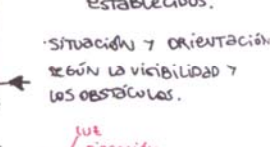 establecidos.
· SITUACIÓN Y ORIENTACIÓN
SEGÚN LA VISIBILIDAD Y
LOS OBSTÁCULOS.
LUZ